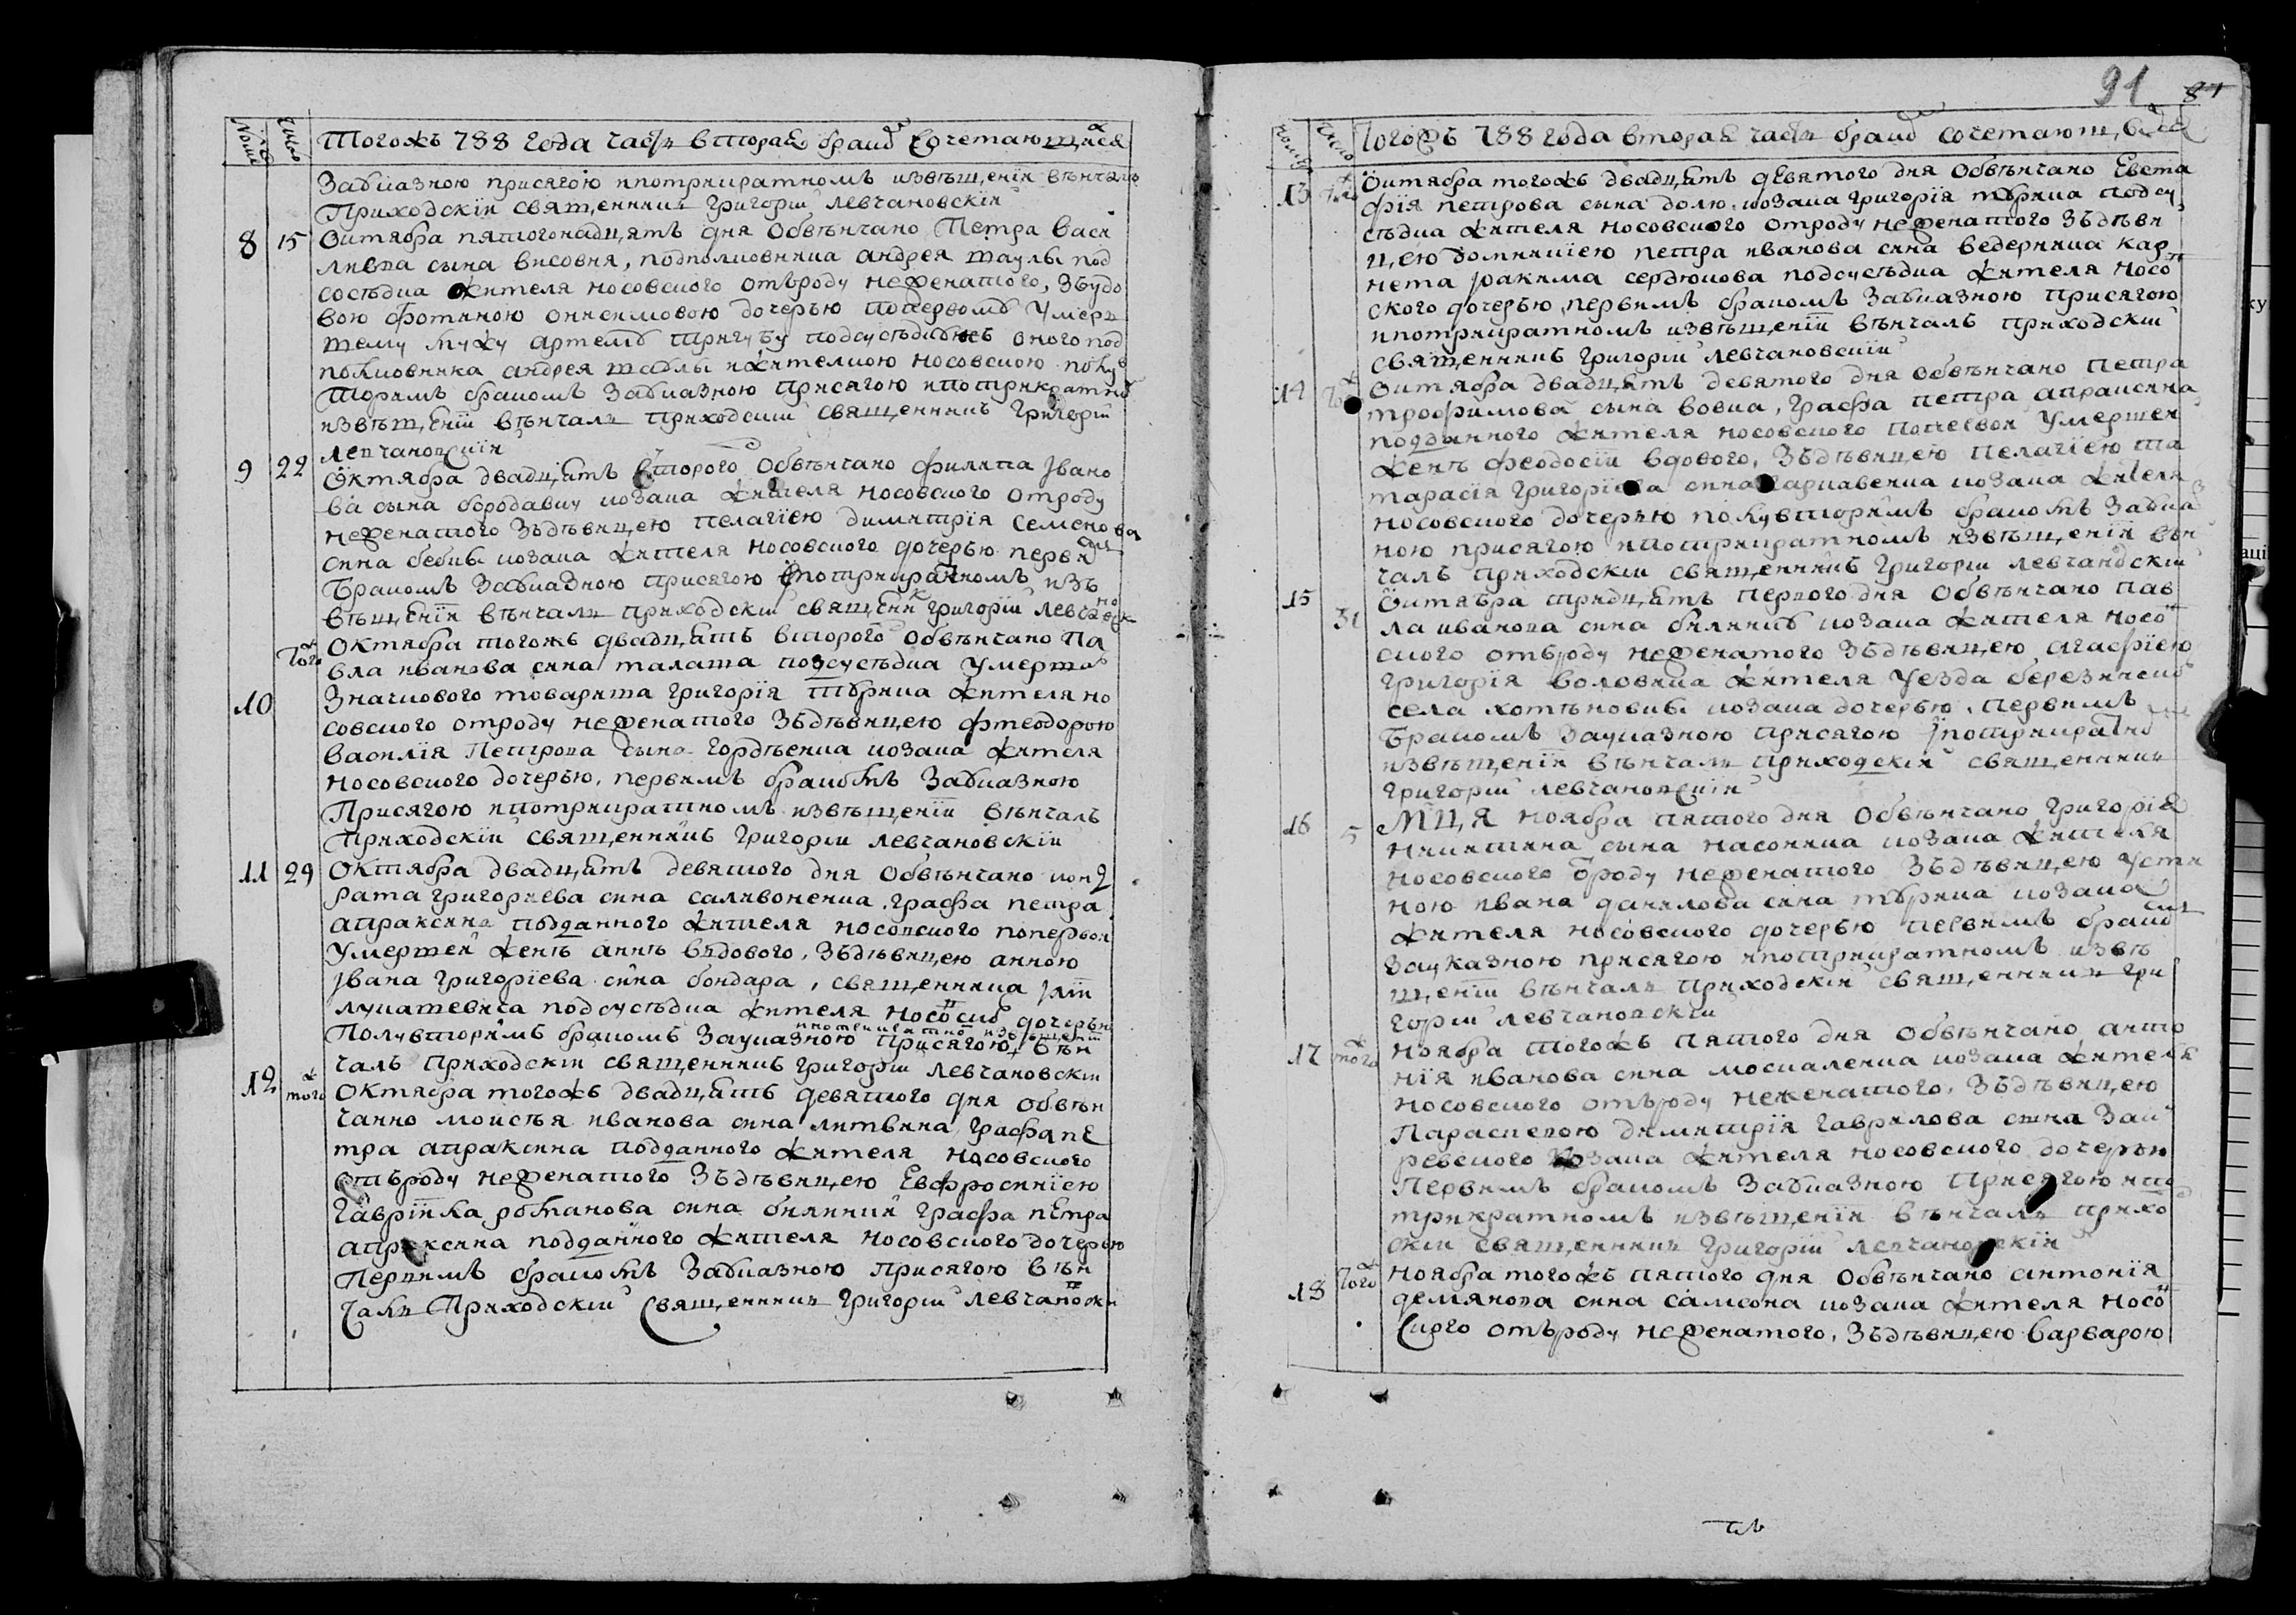 Номеръ Число Тогожъ 788 года часть вторая о бракосочетающихся
Забиазною присягою ипотрикратномъ извѣщеніи вѣнчалъ
Приходскїй священникъ Григорїй левчановскїй
8 15 Октября пятогонадцять дня Обвѣнчано Петра васи
лиева сына висовня, подполковника андрея таулы под
сосѣдка жителя носовского отъроду неженатого, Зъудо
вою фотиною онисимовою дочерью попервомъ Умерш
тему мужу артему тригубу подсусѣдкою оного под
полковника андрея таулы и жителкою носовскою полув
торимъ бракомъ Забиазною Присягою ипотрикратно
извѣщенїи вѣнчалъ Приходскїй священникъ Григорїй
левчановскїй
9 22 Октября двадцять второго Обвѣнчано филипа Івано
ва сына бородавку козака жителя носовского отроду
неженатого Зъдѣвицею пелагїею димитрїя семенова
сина бебы козака жителя носовского дочерью первимъ
Бракомъ Забиазною присягою ипотрикратномъ изъ
вѣщенїи вѣнчалъ приходскїй священникъ Григорїй левчановск
Тогож Октября тогожъ двадцять второго Обвѣнчано Па
вла иванова сина талата подсусѣдка умершого
10 Значкового товариша григорїя шърика жителя но
совского отроду неженатого Зъдѣвицею фтеодорою
василїя Петрова сына гордѣенка козака жителя
носовского дочерью, первимъ бракомъ Забиазною
Присягою ипотрикратномъ извѣщенїи вѣнчалъ
Приходскїй священникъ Григорїй левчановскїй
11 29 Октября двадцять девятого дня обвѣнчано конд
рата григориева сина саливоненка, графа петра
апраксина подданного жителя носовского поперьвой
умершей женѣ аннѣ въдового, Зъдѣвицею анною
Івана григорїева сина бондара, священника
лукашевича подсусѣдка жителя носовско дочерью
Полувторимъ бракомъ Зауказною присягою, ипотрикратно извѣщенїи вѣн
чалъ приходскїй священникъ григорїй левчановскїй
12 тогож Октября тогожъ двадцять девятого дня обвѣн
чанно моисѣя иванова сина литвина графа пе
тра апраксина подданного жителя носовского
отъроду неженатого Зъдѣвицею Евфросинїею
гаврїила романова сина билики графа петра
апраксина подданного жителя носовского дочерью
Первимъ бракомъ Забиазною присягою вѣн
чалъ Приходскїй Священникъ Григорїй левчановски
91 87
Номеръ Число Тогожъ 788 года вторая часть о бракосочетающихся
13 того Октября тогожъ двадцять девятого дня обвѣнчано Евста
фїя петрова сына козака григорїя шърика подсу
сѣдка жителя носовского отроду неженатого Зъдѣви
цею домникїею петра иванова сина ведерника кар
нета якима сердюкова подсусѣдка жителя носов
ского дочерью, первимъ бракомъ Забиазною присягою
ипотрикратномъ извѣщенїи вѣнчалъ приходскїй
священникъ григорїй левчановскїй
14 Того Октября двадцять девятого дня обвѣнчано Петра
трофимова сына вовка, графа петра апраксина
подданного жителя носовского попервой умершей
женѣ феодосїи вдового, Зъдѣвицею пелагїею
тарасїя григорїева сина козака жителя
носовского дочерью полувторимъ бракомъ Забиаз
ною присягою ипотрикратномъ извѣщенїи вѣн
чалъ приходскїй священникъ григорїй левчановскїй
15 31 Октября тридцять первого дня обвѣнчано пав
ла иванова сина билика козака жителя носов
ского отъроду неженатого Зъдѣвицею агафїею
григорїя воловика жителя уезда березинско
села хотѣновки козака дочерью, первимъ
Бракомъ Зауказною присягою ипотрикратно
извѣщенїи вѣнчалъ приходскїй священникъ
григорїй левчановскїй
16 5 Мця ноября пятого дня обвѣнчано григорїя
никитина сына насоника козака жителя
носовского ѿроду неженатого Зъдѣвицею усти
ною ивана данилова сина шърика козака
жителя носовского дочерью первимъ бракомъ
Зауказною присягою ипотрикратномъ извѣ
щенїи вѣнчалъ приходскїй священникъ гри
горїй левчановскїй
17 тогож Ноября тогожъ пятого дня обвѣнчано анто
нїя иванова сина москаленка козака жителя
носовского отъроду неженатого, Зъдѣвицею
Параскевою димитрїя гаврилова сина
козака жителя носовского дочерью
Первимъ бракомъ Забиазною Присягою ипо
трикратномъ извѣщенїи вѣнчалъ прихо
скїй священникъ григорїй левчановскїй
18 Тогож Ноября тогожъ пятого дня обвѣнчано антонїя
демянова сина самсона козака жителя носов
ского отъроду неженатого, Зъдѣвицею варварою